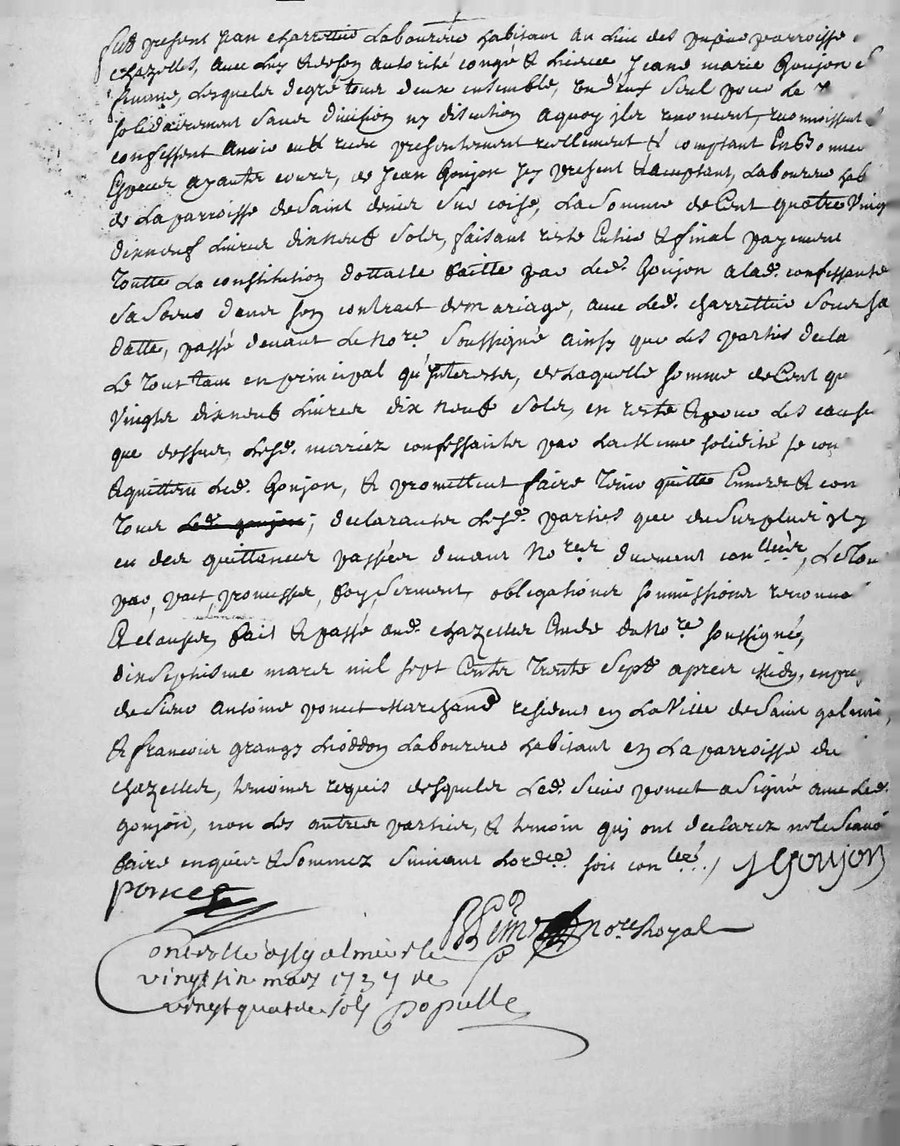 fut present Jean charrettier Laboureur habitant au lieu des parroisse
chazelles, avec luy & de son autorité congé & licence Jeane marie Goujon s
femme, lesquels de gré tous deux ensemble, un d'eux seul pour le
solidairement sans division ny discution a quoy ils renoncent, reconnoissent
confessent avoir eu & receu presentement reellement & comptant En Bonnes
Especes ayants cours, de Jean Goujon Icy present & acceptant, Laboureur hab
de La parroisse de Saint denis sur coise, La Somme de Cent quatre Ving
dixneuf Livres dixneuf sols, faisant reste Entier & final payement
toutte La constitution dottalle faitte par led. Goujon a lad. confessante
sa soeur dans son contract de mariage, avec led. charrettier sous sa
datte, passé devant Le nore. soussigné ainsy que les parties de la
Le tout tant en principal qu'Interests, de laquelle somme de Cent qu
Vingts dixneuf Livres dix neuf sols, en reste & pour les causes
que dessus, lesd. mariez confessants par la meme solidité se con
& quittent led. Goujon, & promettent faire tenir quitte Envers & con
tous led. goujon; declarants lesd. parties que du surplus il y
eu des quittances passées devant Nores duement conllées, Le Tou
par, pact, promesses, foy, serment, obligations soumissions renonc
& clauses, fait & passé aud. chazelles Etude du Nore soussigné,
dix septieme mars mil sept Cents trente sept apres Midy, en pre
de sieur Antoine poncet Marchand resident en La Ville de Saint galmier,
& francois grangy Laboureur habitant en La parroisse de
chazelles, temoins requis desquels led. sieur poncet a signé avec led.
goujon, non les autres parties, & temoin qui ont declarez ne le scavoi
faire enquis & sommez suivant Lordce. soit conlleé. J Goujon
poncet
nore Royal
Controllé a st galmier le
vingt six mars 1737 de
vingt quatre sols populle